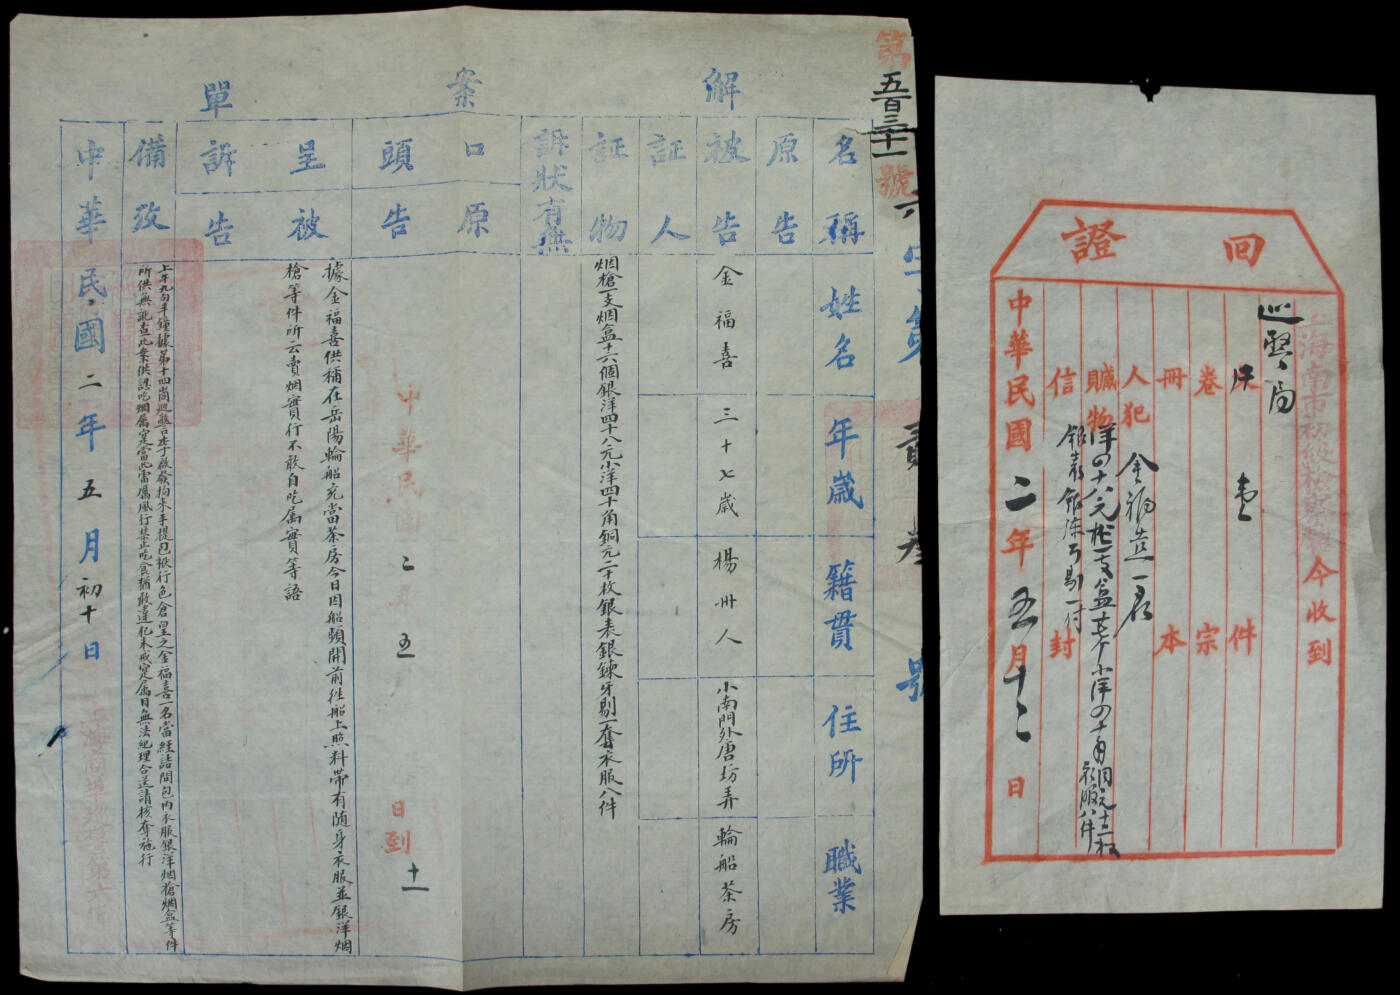 第五百三十一號
解案單
名稱 姓名 年歲 籍貫 住所 職業
原告
被告 金福喜 三十七歲 楊州人 小南門外唐坊弄 輪船茶房
証人
証物 烟槍一支烟盒十六個銀洋四十八元小洋四十角銅元二十枚銀表銀鍊牙剔一套衣服八件
訴狀有無
口頭原告
中華民國二年五月十一日到
呈訴被告 據金福喜供稱在岳陽輪船充當茶房今日因船頭開前往船上照料帶有随身衣服並銀洋烟
槍等件所云賣烟實行不敢自吃属實等語
備攷 上午九句半鐘據第十四崗巡警 拘水手提包 行色倉皇之金福喜一名當經詰問包內衣服銀洋烟槍烟盒等件
所供無訛查此案供認吃烟属實當此雷厲風行禁止吃食猶敢違犯未戒實属目無法紀理合送請核奪施行
中華民國二年五月初十日
上海商埠巡警第六
回證
上海南市初級檢察廳今收到
巡警局
文 件 壹 件
卷 宗
冊 本
人犯 金福喜一名
贓物 洋四十八元 槍一支 盒 小洋四十角 銅元十二枚
銀表銀鍊牙剔一付 衣服八件
信 封
中華民國二年五月十二日